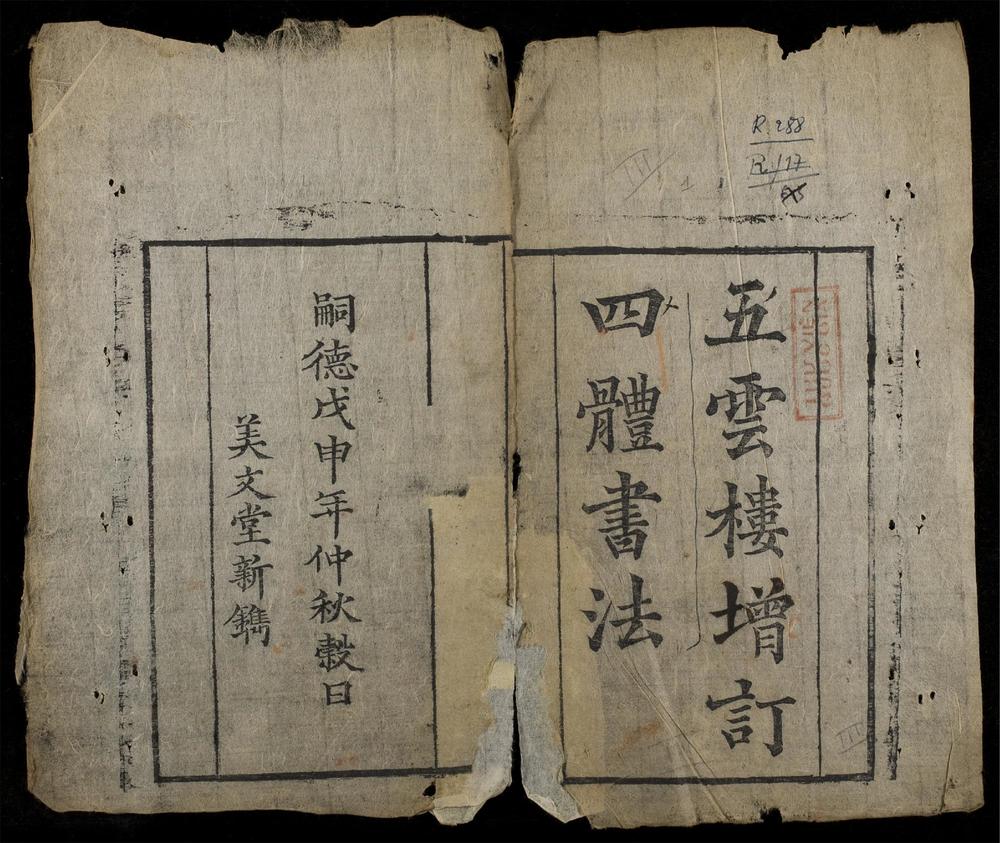 五雲樓增訂
四體書法
嗣德戊申年仲秋穀日
美文堂新鐫
R.288
R.117